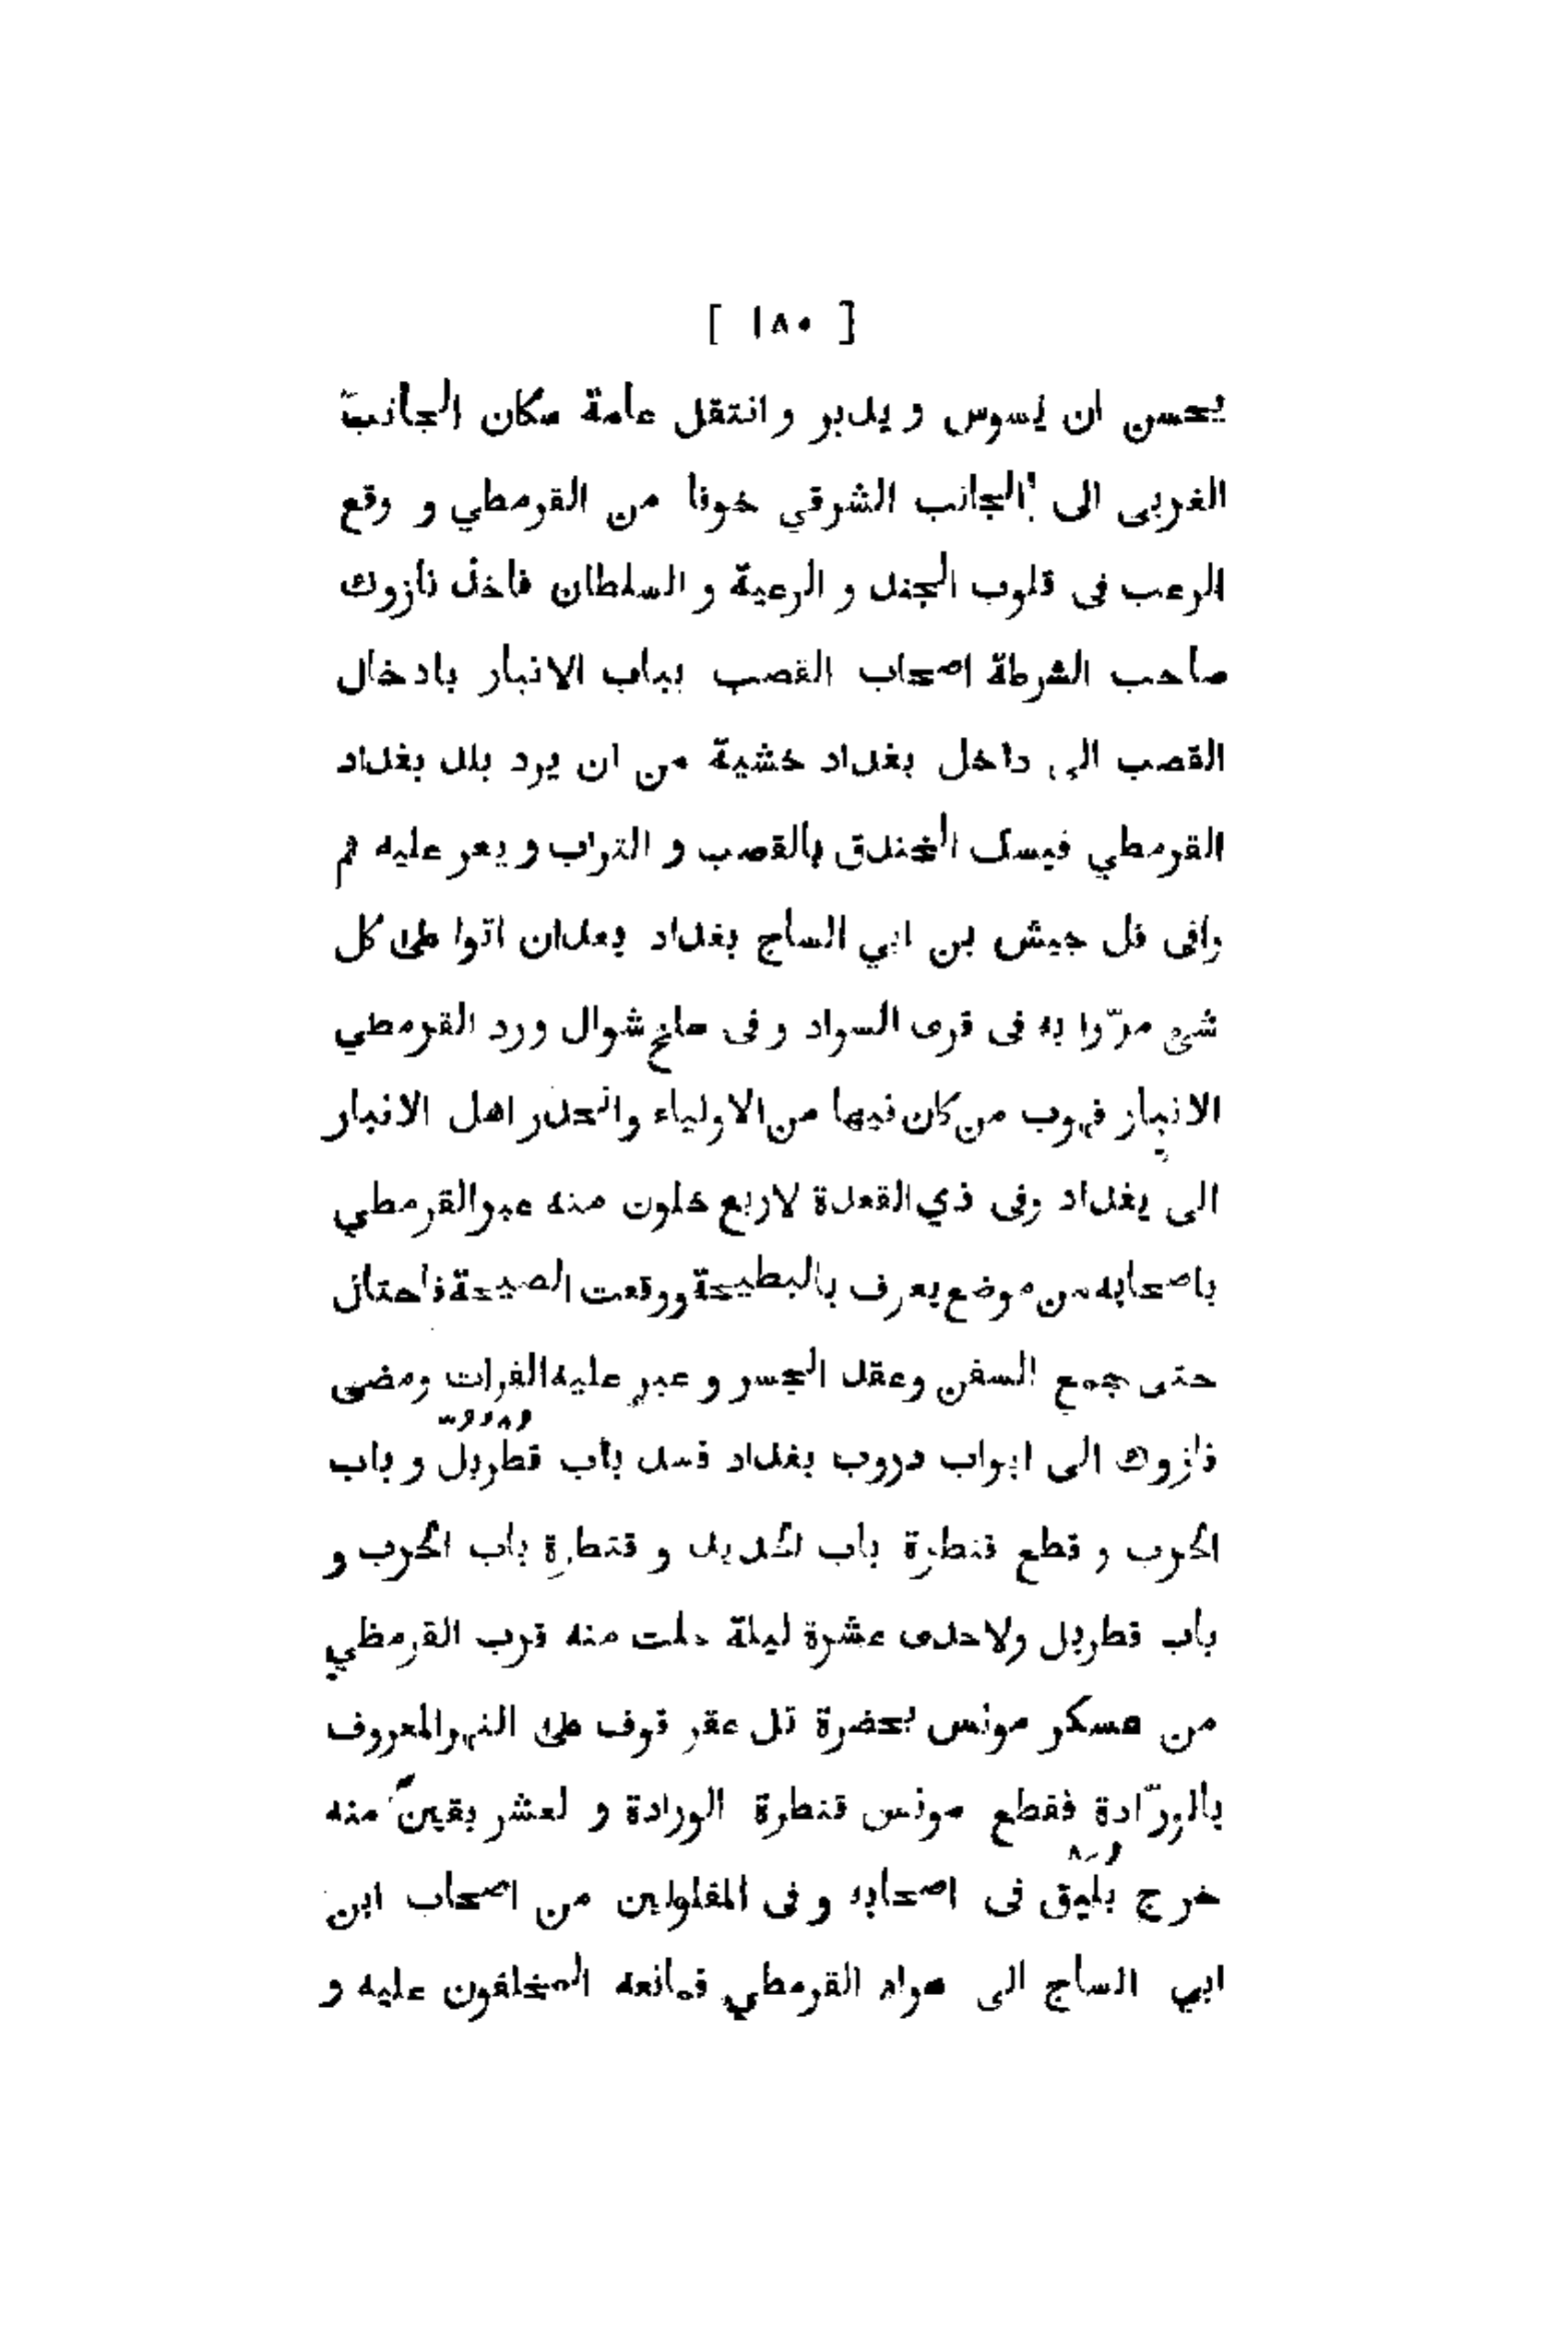 [ ١٨٠ ]
يحسن ان يسوس و يدبر و انتقل عامة سكان الجانب
الغربى الى الجانب الشرقي خوفا من القرمطي و وقع
الرعب فى قلوب الجند و الرعية و السلطان فاخذ نازوك
صاحب الشرطة اصحاب القصب بباب الانبار بادخال
القصب الى داخل بغداد خشية من ان يرد بلد بغداد
القرمطي فيسك الخندق بالقصب و التراب و يعر عليه ثم
وافى فل جيش بن ابي الساج بغداد بعدان اتوا على كل
شى مرّوا به فى قرى السواد و فى سلخ شوال ورد القرمطي
الانبار فهرب من كان فيها من الاولياء وانحدر اهل الانبار
الى بغداد وفى ذي القعدة لاربع خلون منه عبر القرمطي
باصحابه من موضع يعرف بالبطيحة ووقعت الصيحة فاحتال
حتى جمع السفن وعقد الجسر و عبر عليه الفرات ومضى
نازوك الى ابواب دروب بغداد فسد باب قُطْرُبُلّ و باب
الحرب و قطع قنطرة باب الحديد و قنطرة باب الحرب و
باب قطربل ولاحدى عشرة ليلة خلت منه قرب القرمظي
من عسكر مونس بحضرة تل عقر قوف على النهر المعروف
بالورّادة فقطع مونس قنطرة الورادة و لعشر بقين منه
خرج بُلَيْق فى اصحابه و فى المفلولين من اصحاب ابن
ابي الساج الى سواد القرمطي فمانعه المخلفون عليه و